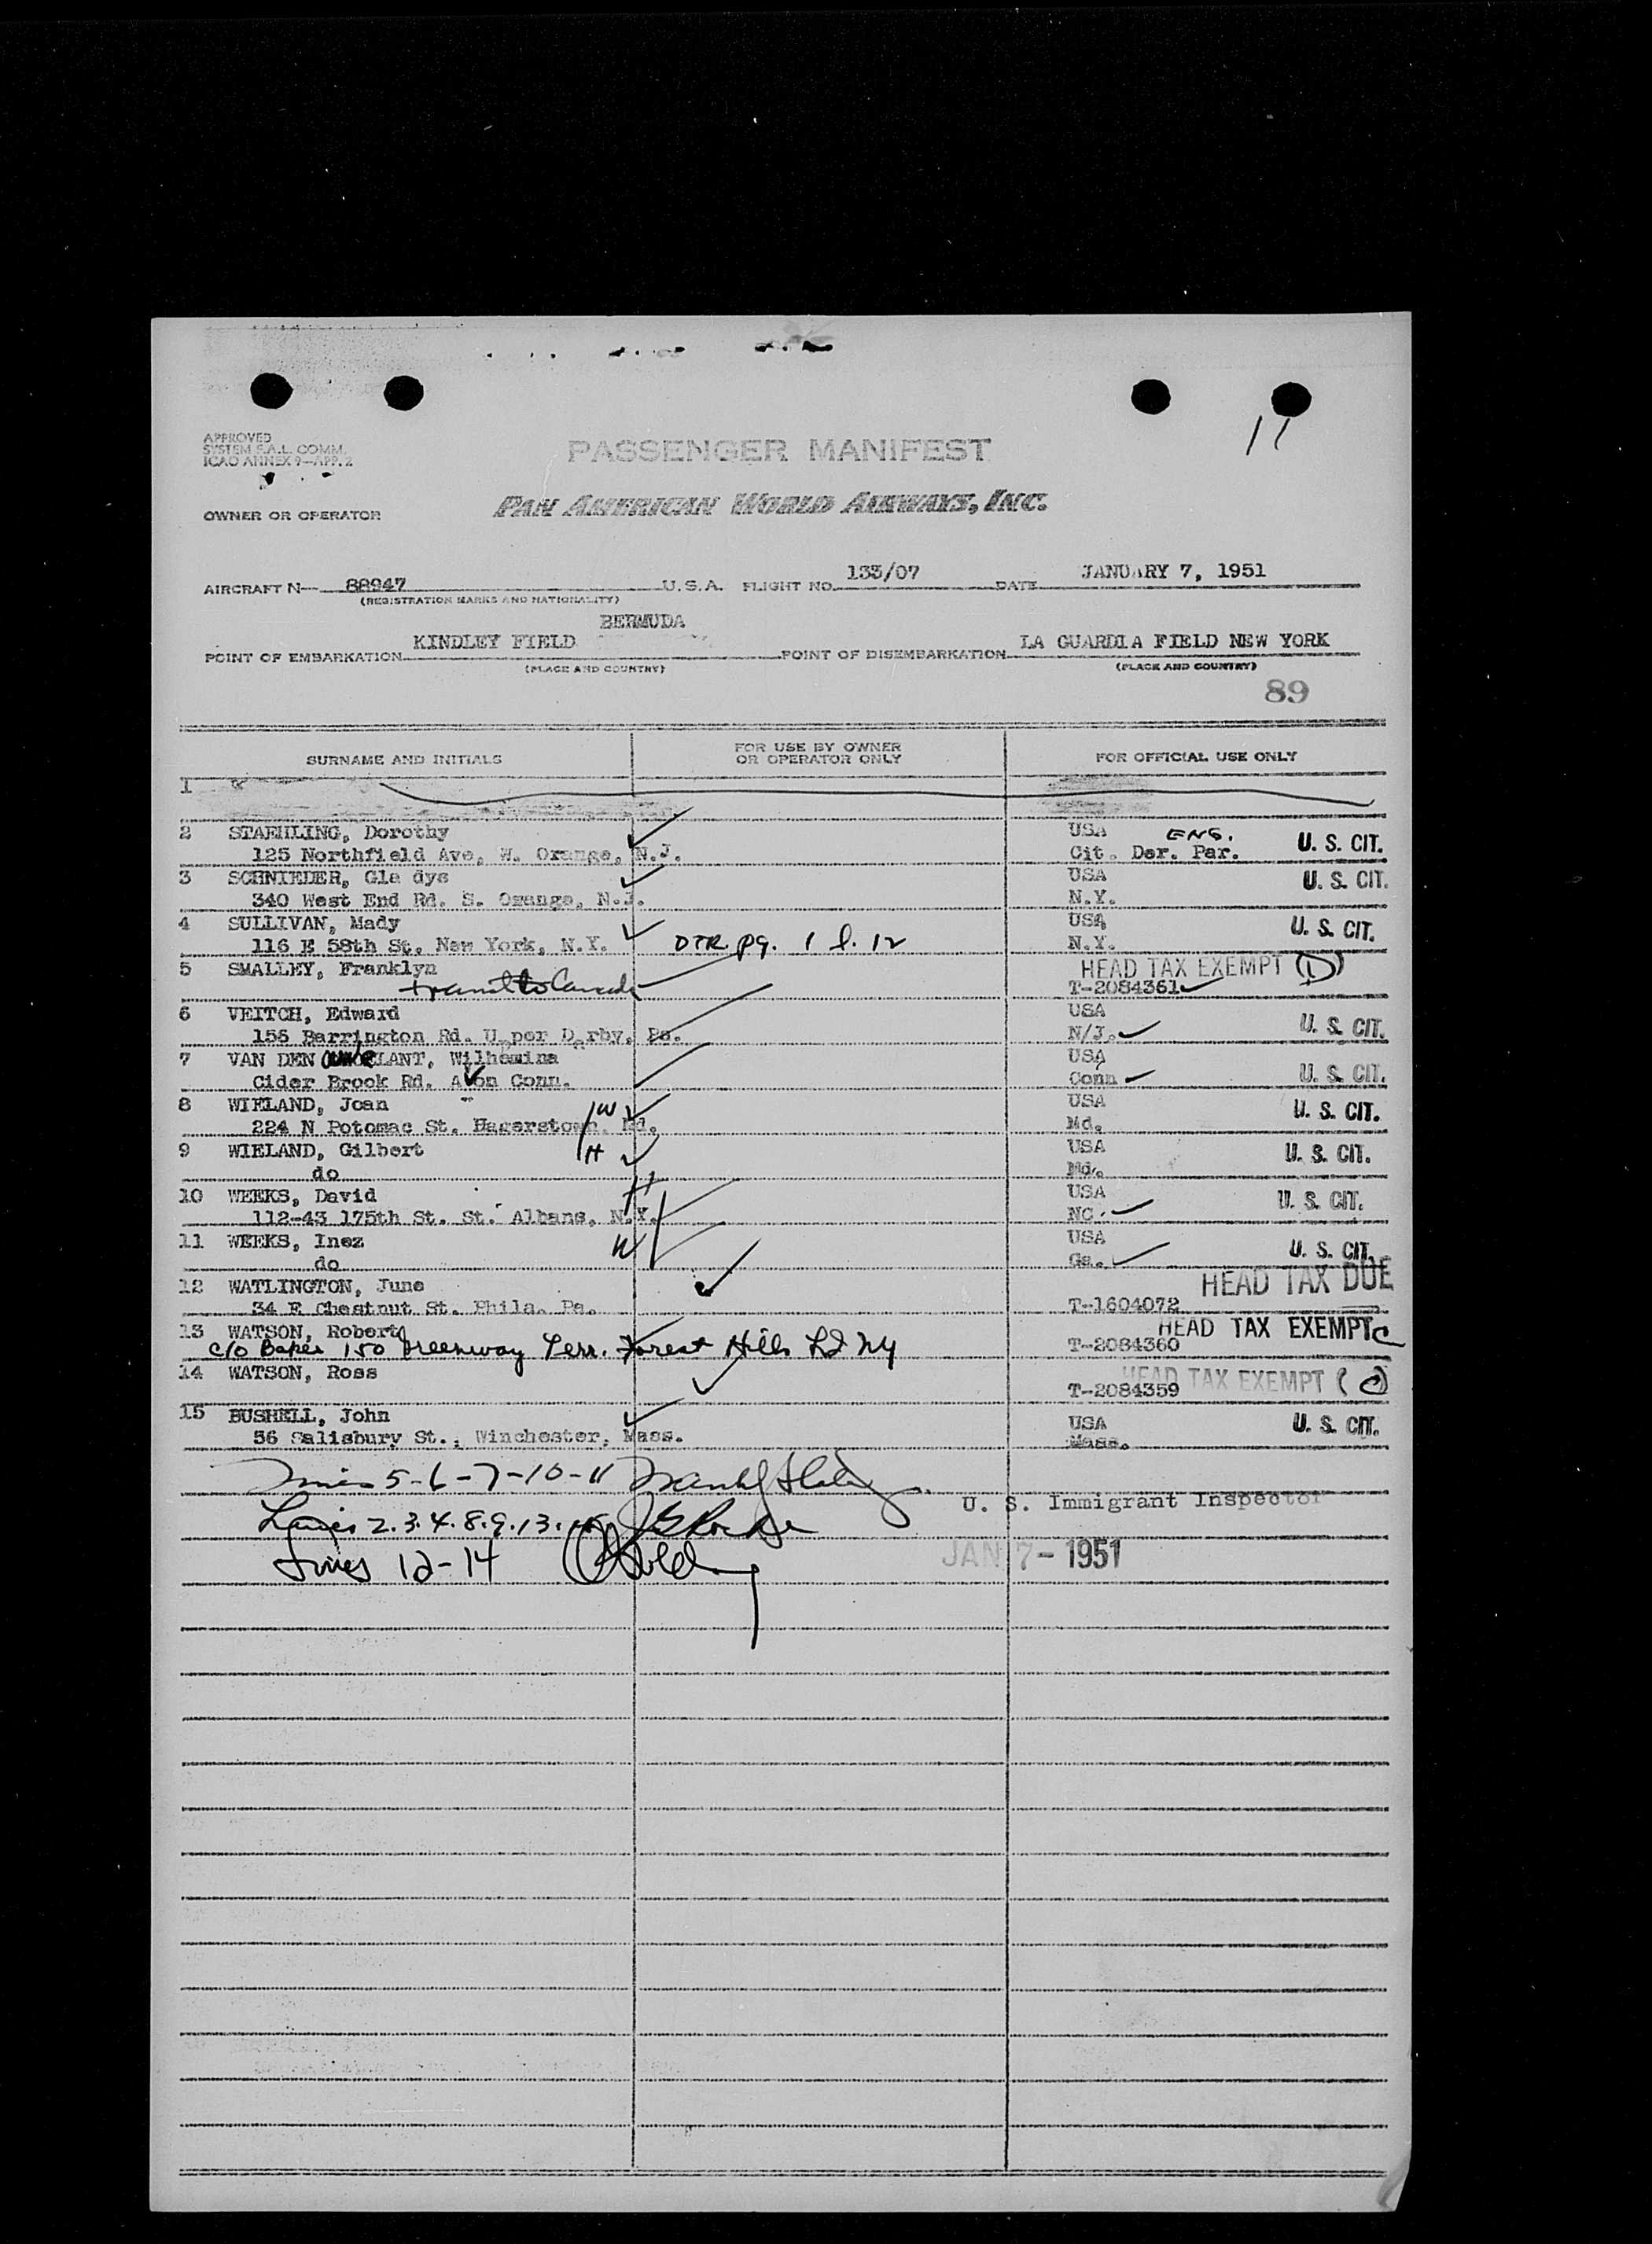 11
APPROVED
SYSTEM F.A.L. COMM.
ICAO ANNEX 9—APP. 2
PASSENGER MANIFEST
OWNER OR OPERATOR
PAN AMERICAN WORLD AIRWAYS, INC.
AIRCRAFT N— 88947 U.S.A. FLIGHT NO. 133/07 DATE JANUARY 7, 1951
(REGISTRATION MARKS AND NATIONALITY)
BERMUDA
POINT OF EMBARKATION KINDLEY FIELD POINT OF DISEMBARKATION LA GUARDIA FIELD NEW YORK
(PLACE AND COUNTRY) (PLACE AND COUNTRY)
89
SURNAME AND INITIALS FOR USE BY OWNER OR OPERATOR ONLY FOR OFFICIAL USE ONLY
1
2 STAEHLING, Dorothy USA ENG. U. S. CIT.
125 Northfield Ave, W. Orange, N.J. Cit. Der. Par.
3 SCHNIEDER, Gla dys USA U. S. CIT.
340 West End Rd. S. Orange, N.J. N.Y.
4 SULLIVAN, Mady USA U. S. CIT.
116 E 58th St, New York, N.Y. DTR pg. 1 l. 12 N.Y.
5 SMALLEY, Franklyn HEAD TAX EXEMPT (D)
transit to Canada T-2084361
6 VEITCH, Edward USA U. S. CIT.
156 Barrington Rd. Upper Darby, Pa. N/J.
7 VAN DEN LANT, Wilhemina USA
Cider Brook Rd. Avon Conn. Conn U. S. CIT.
8 WIELAND, Joan W USA U. S. CIT.
224 N Potomac St. Hagerstown, Md. Md.
9 WIELAND, Gilbert H USA U. S. CIT.
do Md.
10 WEEKS, David H USA U. S. CIT.
112-43 175th St. St. Albans, N.Y. NC.
11 WEEKS, Inez W USA U. S. CIT.
do Ga.
12 WATLINGTON, June HEAD TAX DUE
34 E Chestnut St. Phila. Pa. T-1604072
13 WATSON, Robert HEAD TAX EXEMPT C
c/o Baker 150 Greenway Terr. Forest Hills LI NY T-2084360
14 WATSON, Ross HEAD TAX EXEMPT (C)
T-2084359
15 BUSHELL, John USA U. S. CIT.
56 Salisbury St., Winchester, Mass. Mass.
Lines 5-6-7-10-11
U. S. Immigrant Inspector
Lines 2.3.4.8.9.13.15
Lines 12-14 JAN 7 - 1951